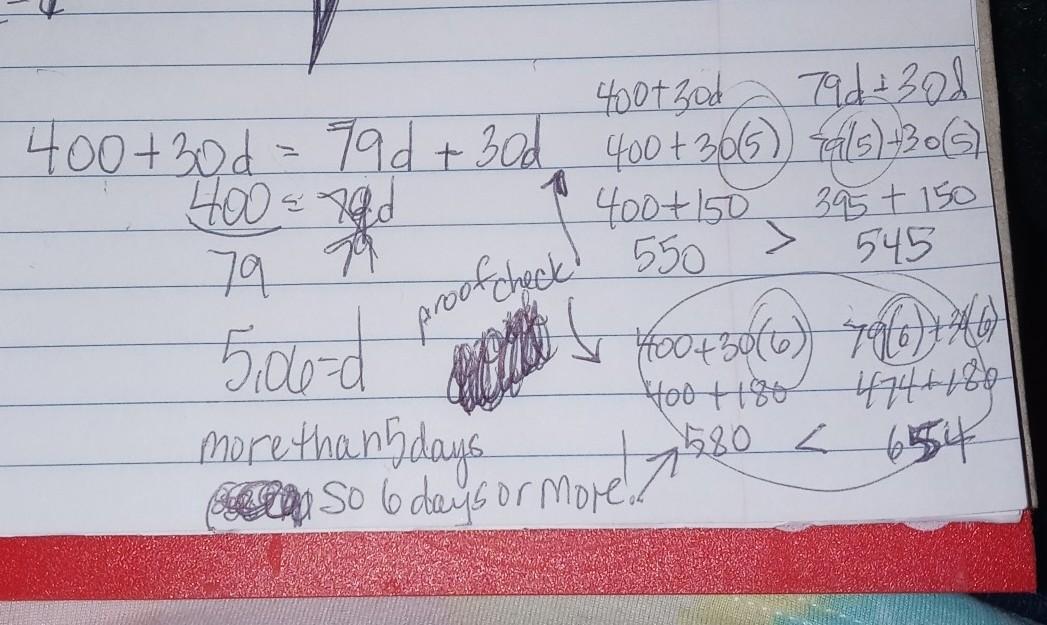 400+30d = 79d + 30d
400 = 79d
79 79
5.06=d
more than 5 days
so 6 days or more!
proof check
400+30d 79d+30d
400 + 30(5) 79(5)+30(5)
400+150 395 + 150
550 > 545
400+30(6) 79(6)+30(6)
400 +180 474+180
580 < 654